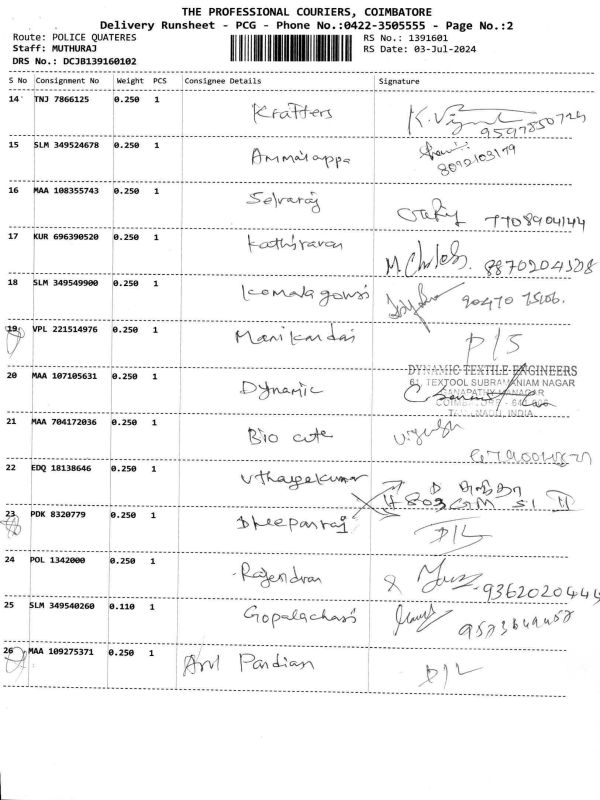 THE PROFESSIONAL COURIERS, COIMBATORE
Delivery Runsheet - PCG - Phone No.:0422-3505555 - Page No.:2
Route: POLICE QUATERES RS No.: 1391601
Staff: MUTHURAJ RS Date: 03-Jul-2024
DRS No.: DCJB139160102
S No Consignment No Weight PCS Consignee Details Signature
14 TNJ 7866125 0.250 1 Krafters
15 SLM 349524678 0.250 1 Ammaiappa
8092103179
16 MAA 108355743 0.250 1 Selvaraj
7708904144
17 KUR 696390520 0.250 1 Kathiravan
8870204508
18 SLM 349549900 0.250 1 Komalagowri
90470
19 VPL 221514976 0.250 1 Manikandas D/S
DYNAMIC TEXTILE ENGINEERS
20 MAA 107105631 0.250 1 Dynamic
61, TEXTOOL SUBRAMANIAM NAGAR
GANAPATHY MANAGAR
COIMBATORE
TAMILNADU, INDIA
21 MAA 704172036 0.250 1 Bio cute
22 EDQ 18138646 0.250 1 Uthayakumar
23 PDK 8320779 0.250 1 Dheepanraj D/L
24 POL 1342000 0.250 1 Rajendran
9362020444
25 SLM 349540260 0.110 1 Gopalachari
26 MAA 109275371 0.250 1 Arul Pandian D/L